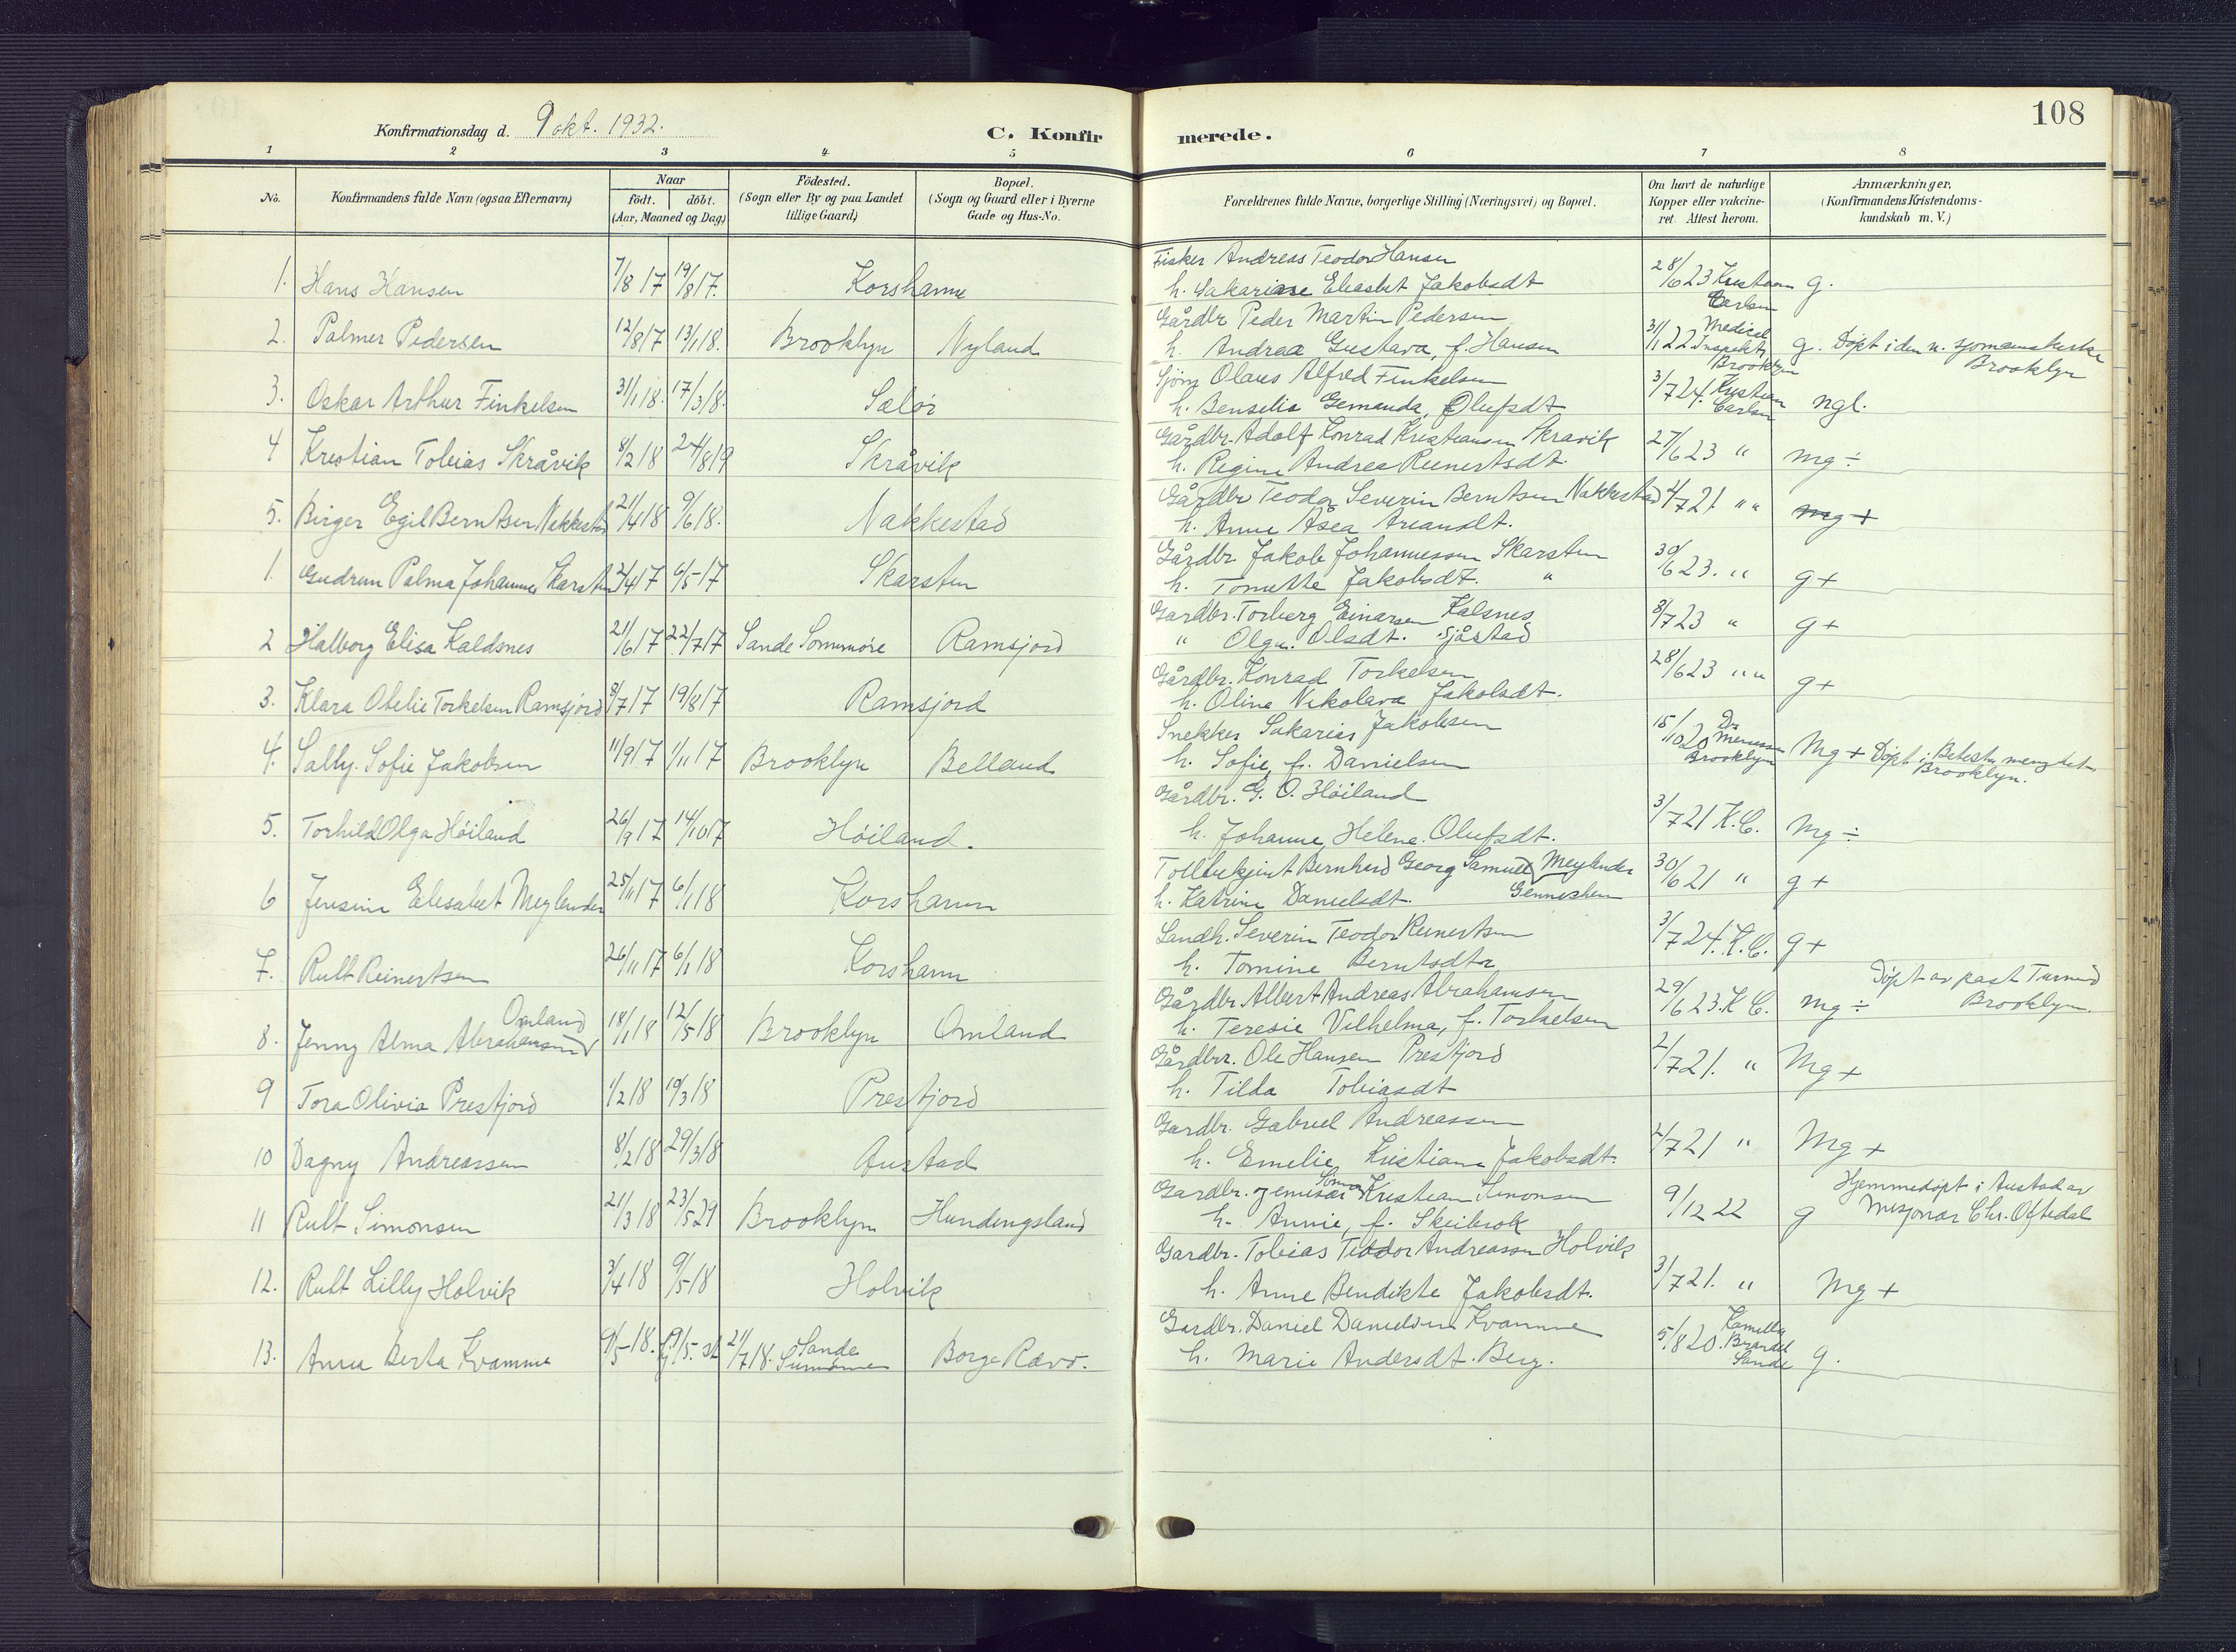 108
Konfirmationsdag d. 9 okt. 1932.
C. Konfirmerede.
1 2 3 4 5 6 7 8
No.
Konfirmandens fulde Navn (ogsaa Efternavn)
Naar
födt. | döbt.
(Aar, Maaned og Dag)
Födested.
(Sogn eller By og paa Landet
tillige Gaard)
Bopæl.
(Sogn og Gaard eller i Byerne
Gade og Hus-No.
Forældrenes fulde Navne, borgerlige Stilling (Næringsvei) og Bopæl.
Om havt de naturlige
Kopper eller vakcine-
ret. Attest herom.
Anmærkninger,
(Konfirmandens Kristendoms-
kundskab m. V.)
1. Hans Hansen 7/8 17 19/8 17. Korshamn
Fisker Andreas Teodor Hansen
h. Sakariase Eliasbet Jakobsdt
28/6 23 Kristian Carlsen g.
2. Palmer Pedersen 12/8 17 13/1 18. Brooklyn Nyland
Gårdbr Peder Martin Pedersen
h. Andrea Gustava, f. Hansen
31/1 22 Medical Inspekt. Brooklyn g. Döpt i den n. sjömannskirke
Brooklyn
3. Oskar Arthur Finkelsen 31/1 18. 17/3 18. Sælör
Sjöm Olaus Alfred Finkelsen
h. Benselie Gemanda, Olufsdt
3/7 24. Kristian Carlsen ngl.
4 Kristian Tobias Skråvik 8/2 18 24/8 19 Skråvik
Gårdbr. Adolf Konrad Kristiansen Skravik
h. Regine Andrea Reinertsdt.
27/6 23 " mg ÷
5. Birger Egil Berntsen Nakkestad 21/4 18 9/6 18. Nakkestad
Gårdbr Teodor Severin Berntsen Nakkestad
h. Anne Åsea
2/7 21 " " mg +
1. Gudrun Palma Johanne Skarsten 2/4 17 6/5 17 Skarsten
Gårdbr. Jakob Johannessen Skarsten
h. Tomette Jakobsdt. "
30/6 23. " g +
2 Halborg Elisa Kaldsnes 21/6 17 22/7 17 Sande Sönnmöre Ramsjord
Gardbr. Torberg Einarsen Kalsnes
" Olga Olsdt. Sjåstad
8/7 23 " g +
3. Klara Otelie Torkelsen Ramsjord 8/7 17 19/8 17 Ramsjord
Gårdbr. Konrad Torkelsen
h. Oline Nikolava Jakobsdt.
28/6 23 " " g +
4. Sally Sofie Jakobsen 11/9 17 1/11 17 Brooklyn Belland
Snekker Sakarias Jakobsen
h. Sofie, f. Danielsen
15/10 20 Dr Brooklyn Mg + Döpt i
Brooklyn.
5. Torhild Olga Höiland 26/9 17 14/10 17 Höiland.
Gårdbr. G. O. Höiland
h. Johanne Helene Olufsdt.
3/7 21 K. C. Mg ÷
6 Jensine Elisabet Meylender 25/11 17 6/1 18 Korshamn
Tollbetjent Bernhard Georg Samuel Meylender
h. Katrine Danielsdt.
30/6 21 " g +
7. Rutt Reinertsen 26/11 17 6/1 18 Korshamn
Landh. Severin Teodor Reinertsen
h. Tomine Berntsdtr
3/7 24. K. C. g +
8. Jenny Alma Abrahamsen Omland 18/1 18 12/5 18 Brooklyn Omland
Gårdbr. Albert Andreas Abrahamsen
h. Teresie Vilhelma, f. Torkelsen
29/6 23. K C. mg ÷ Döpt av past Turmod
Brooklyn.
9 Tora Olivia Prestjord 1/2 18 10/3 18 Prestjord
Gårdbr. Ole Hansen Prestjord
h. Tilda Tobiasdt
2/7 21. " Mg +
10 Dagny Andreassen 8/2 18 29/3 18 Austad
Gardbr. Gabriel Andreassen
h. Emelie Kristiane Jakobsdt.
2/7 21 " Mg +
11 Rutt Simonsen 21/3 18 23/5 29 Brooklyn Hundingsland
Gardbr. Kristian Simonsen
h. Annie, f. Skeibrok
9/12 22 g Hjemmedöpt i Austad av
Misjonær Chr. Oftedal
12. Rutt Lilly Holvik 3/4 18 9/5 18 Holvik
Gardbr. Tobias Teodor Andreassen Holvik
h. Anne Bendikte Jakobsdt.
3/7 21. " Mg +
13. Anna Berta Kvamme 9/5 18. 21/7 18. Sande Sunnmöre Borge Rævö.
Gardbr. Daniel Danielsen Kvamme
h. Marie Andersdt. Berg.
5/8 20. Kamilla Brandal Sande g.